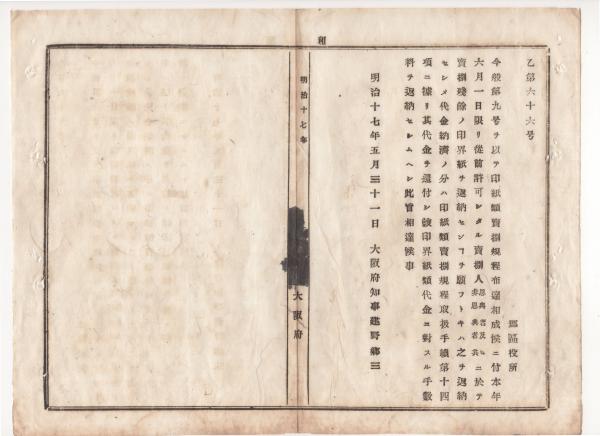 乙第六十六号
郡區役所
今般第九号ヲ以テ印紙類賣捌規程布達相成候ニ付本年
六月一日限リ從前許可シタル賣捌人ニ於テ
賣捌殘餘ノ印界紙ヲ返納センヿヲ願フトキハ之ヲ返納
セシメ代金納濟ノ分ハ印紙類賣捌規程取扱手續第十四
項ニ據リ其代金ヲ還付シ該印界紙類代金ニ對スル手數
料ヲ返納セシムヘシ此旨相達候事
明治十七年五月三十一日 大阪府知事建野郷三
明治十七年
大阪府